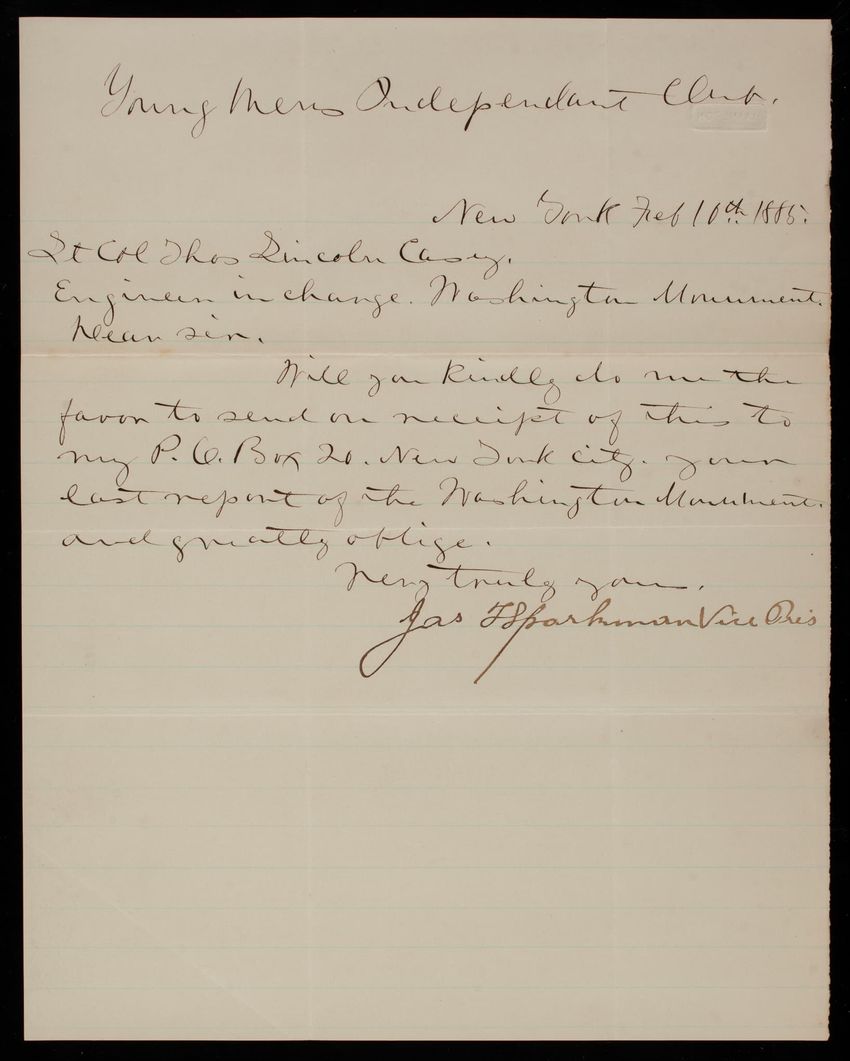 Young Mens Independant Club.
New York Feb 10th 1885.
Lt Col Thos Lincoln Casey.
Engineer in charge. Washington Monument.
Dear sir.
Will you kindly do me the
favor to send on receipt of this to
my P. O. Box 20. New York city. your
last report of the Washington Monument.
and greatly oblige.
Very truly yours.
Jas T Sparkman Vice Pres